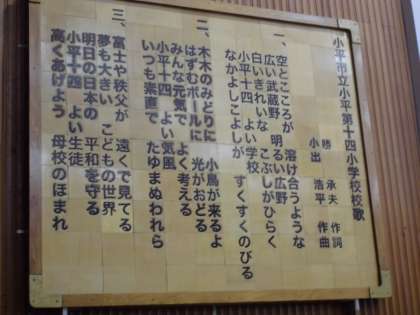 小平市立小平第十四小学校校歌
勝 承夫 作詞
小出 浩平 作曲
一、空とこころが 溶け合うような
広い武蔵野 明るい広野
白いきれいな こぶしがひらく
小平十四 よい学校
なかよしこよしが すくすくのびる
二、木木のみどりに 小鳥が来るよ
はずむボールに 光がおどる
みんな元気で よく考える
小平十四 よい気風
いつも素直で たゆまぬわれら
三、富士や秩父が 遠くで見てる
夢も大きい こどもの世界
明日の日本の 平和を守る
小平十四 よい生徒
高くあげよう 母校のほまれ